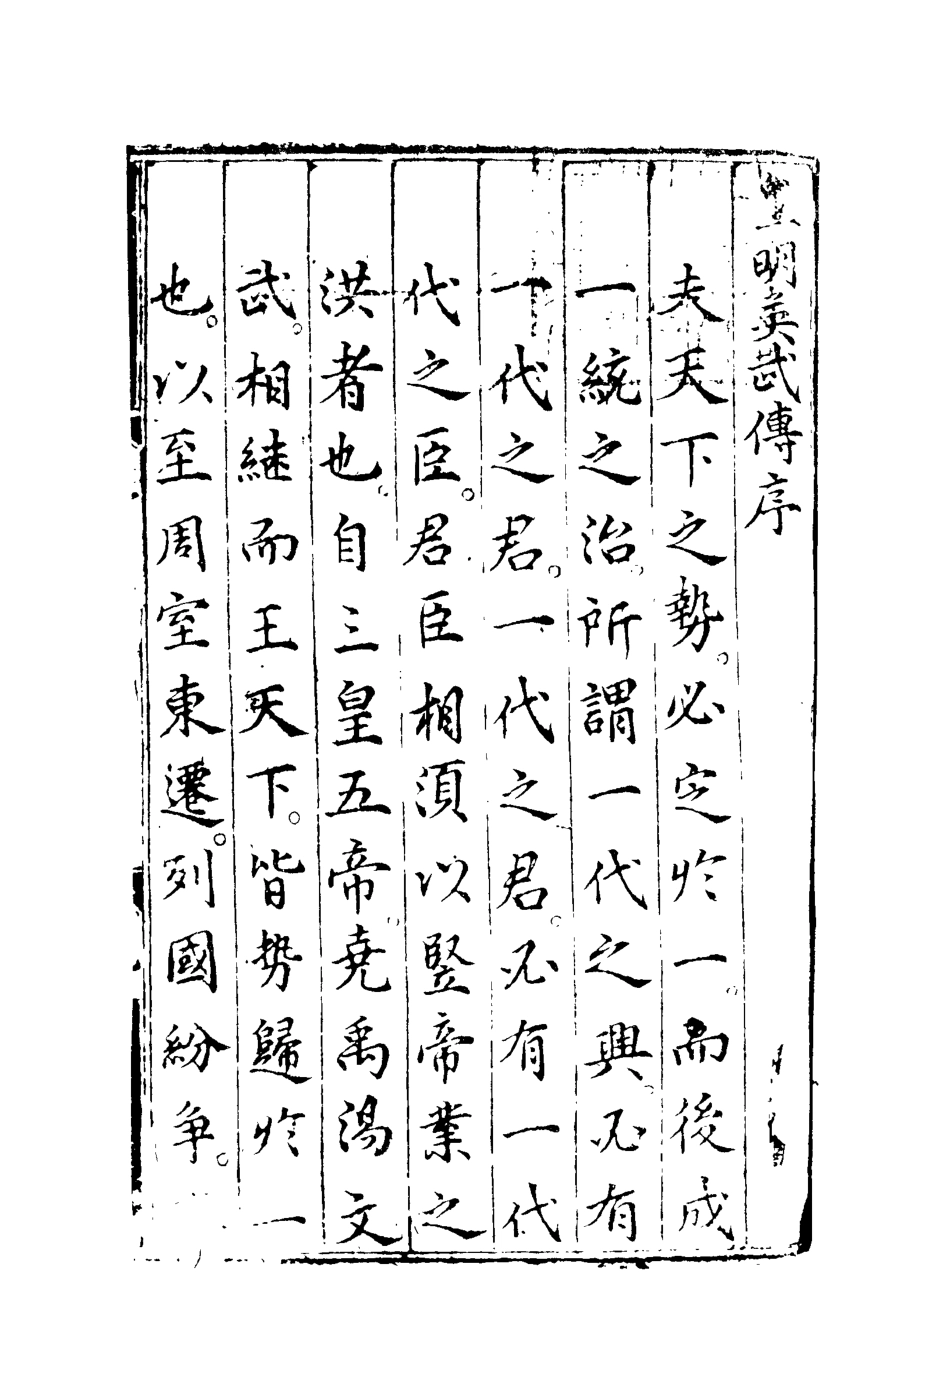 皇明英武傳序
夫天下之勢。必定於一。而後成
一統之治。所謂一代之興。必有
一代之君。一代之君。必有一代
代之臣。君臣相須以豎帝業之
洪者也。自三皇五帝。堯禹湯文
武。相継而王天下。皆勢歸於一
也。以至周室東遷。列國紛争。